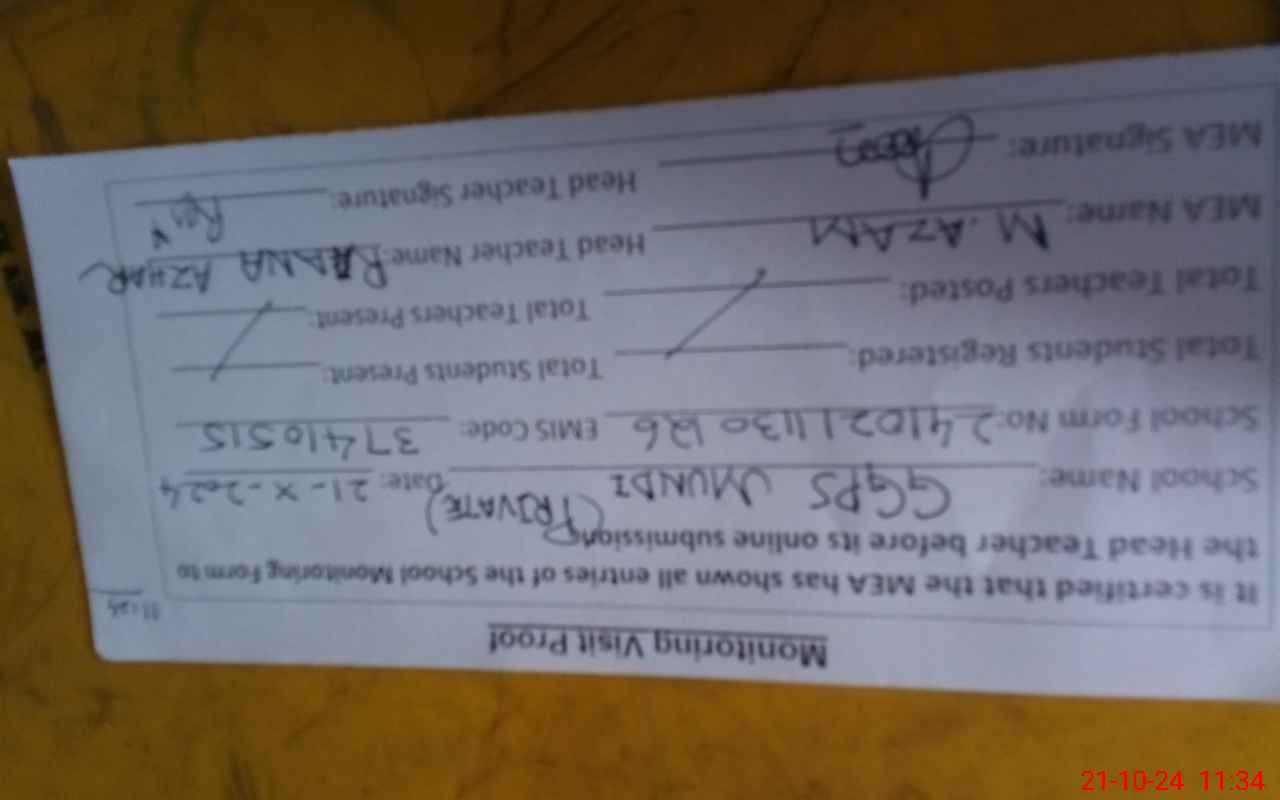 Monitoring Visit Proof
11:24
It is certified that the MEA has shown all entries of the School Monitoring Form to
the Head Teacher before its online submission.
School Name: GGPS MUNDI (PRIVATE) Date: 21-X-2024
School Form No: 241021130126 EMIS Code: 37410515
Total Students Registered: Total Students Present:
Total Teachers Posted: Total Teachers Present:
MEA Name: M.AZAM Head Teacher Name: RAANA AZHAR
MEA Signature: Head Teacher Signature:
21-10-24 11:34